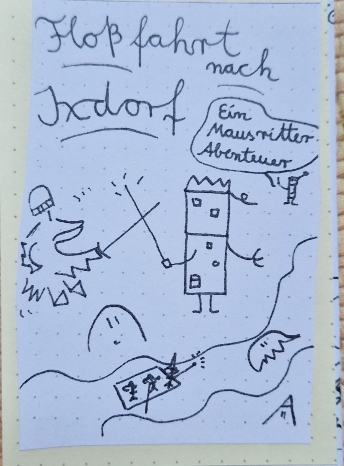 Floß fahrt
nach
Ixdorf
Ein
Mausritter
Abenteuer
Ä